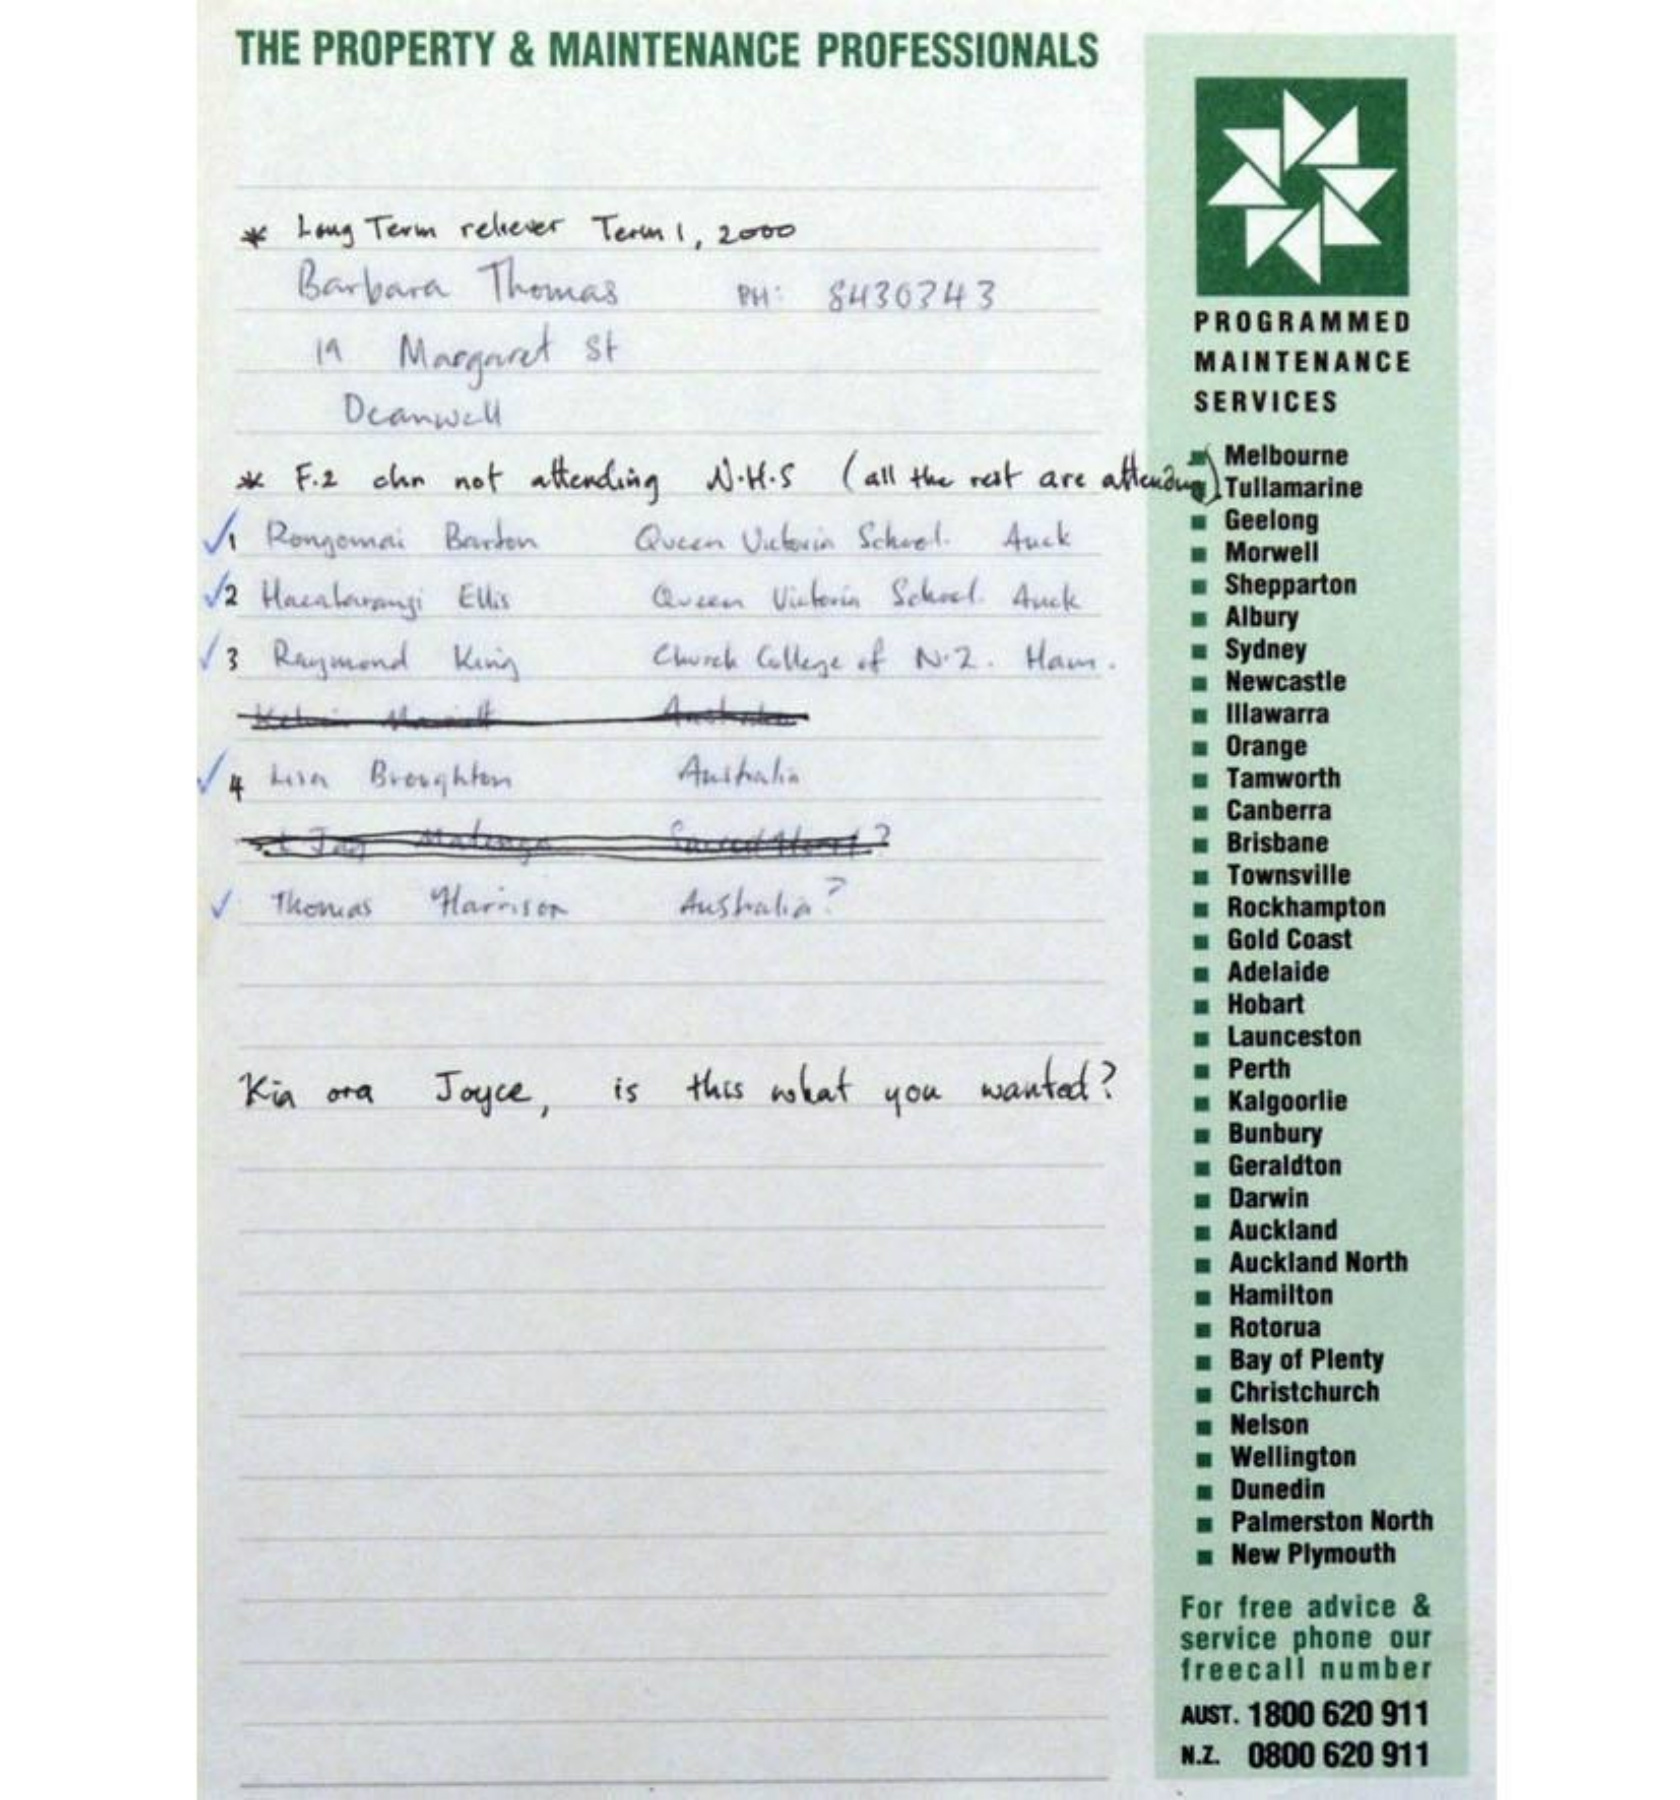 THE PROPERTY & MAINTENANCE PROFESSIONALS
* Long Term reliever Term 1, 2000
Barbara Thomas PH: 8430343
19 Margaret St
Deanwell
* F.2 chn not attending N.H.S (all the rest are attending)
✓1 Rongomai Barton Queen Victoria School. Auck
✓2 Ellis Queen Victoria School. Auck
✓3 Raymond King Church College of N.Z. Ham.
Australia
✓4 Lisa Broughton Australia
Matenga ?
✓ Thomas Harrison Australia?
Kia ora Joyce, is this what you wanted?
PROGRAMMED
MAINTENANCE
SERVICES
Melbourne
Tullamarine
Geelong
Morwell
Shepparton
Albury
Sydney
Newcastle
Illawarra
Orange
Tamworth
Canberra
Brisbane
Townsville
Rockhampton
Gold Coast
Adelaide
Hobart
Launceston
Perth
Kalgoorlie
Bunbury
Geraldton
Darwin
Auckland
Auckland North
Hamilton
Rotorua
Bay of Plenty
Christchurch
Nelson
Wellington
Dunedin
Palmerston North
New Plymouth
For free advice &
service phone our
freecall number
AUST. 1800 620 911
N.Z. 0800 620 911